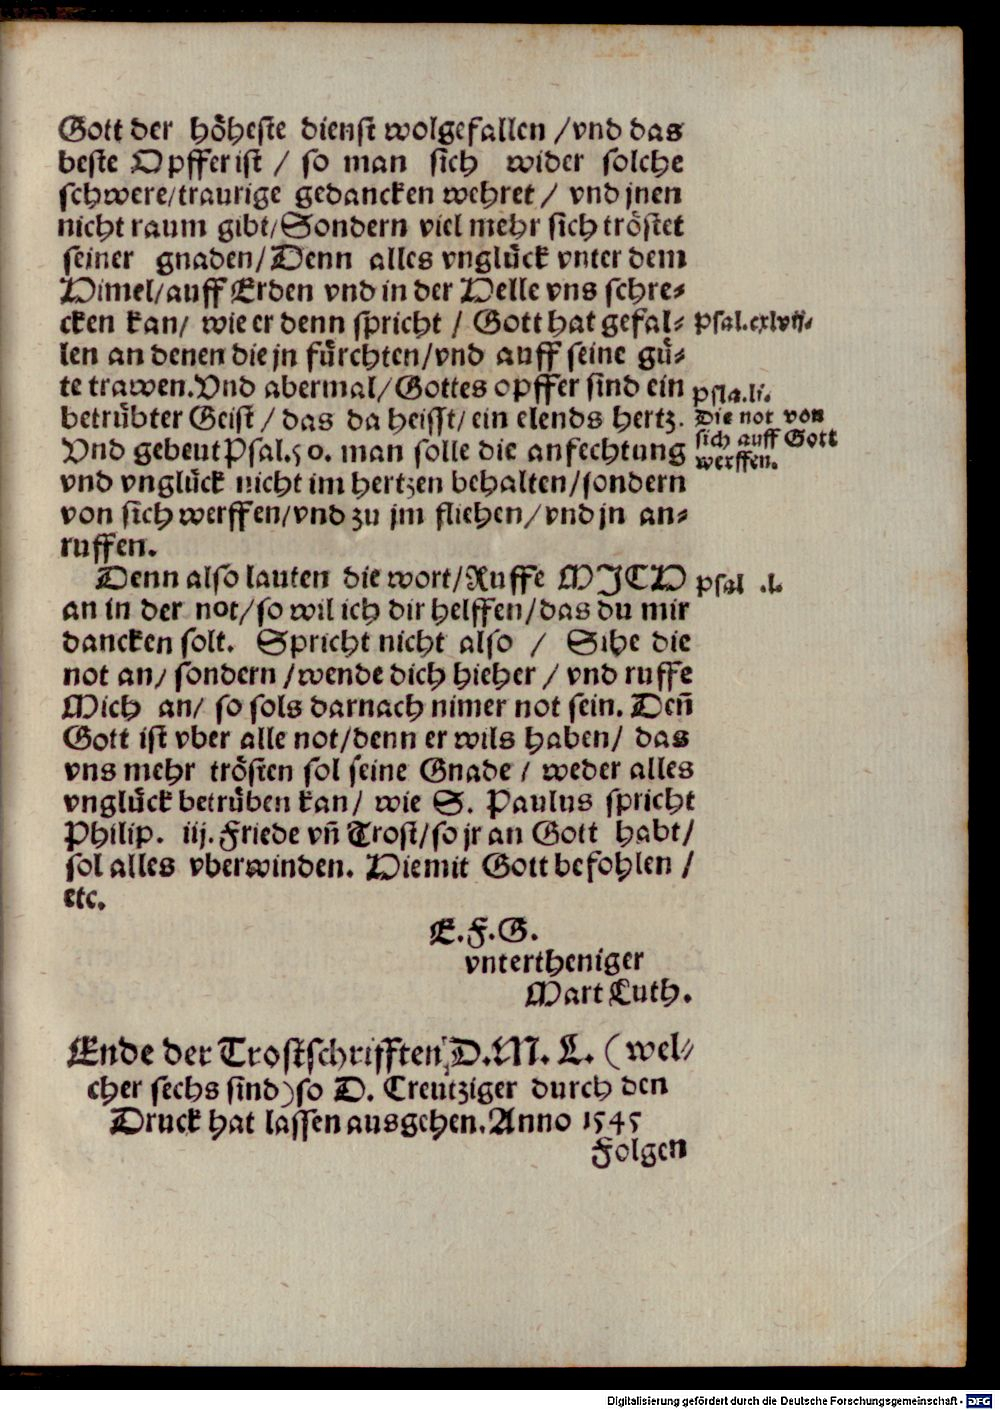 Gott der höheste dienst wolgefallen / vnd das
beste Opffer ist / so man sich wider solche
schwere / traurige gedancken wehret / vnd jnen
nicht raum gibt / Sondern viel mehr sich tröstet
seiner gnaden / Denn alles vnglück vnter dem
Himel / auff Erden vnd in der Helle vns schre-
cken kan / wie er denn spricht / Gott hat gefal-
len an denen die jn fürchten / vnd auff seine gü-
te trawen. Vnd abermal / Gottes opffer sind ein
betrübter Geist / das da heisst / ein elends hertz.
Vnd gebeut Psal. 50. man solle die anfechtung
vnd vnglück nicht im hertzen behalten / sondern
von sich werffen / vnd zu jm fliehen / vnd jn an-
ruffen.
Denn also lauten die wort / Ruffe MICH
an in der not / so wil ich dir helffen / das du mir
dancken solt. Spricht nicht also / Sihe die
not an / sondern / wende dich hieher / vnd ruffe
Mich an / so sols darnach nimer not sein. Den̄
Gott ist vber alle not / denn er wils haben / das
vns mehr trösten sol seine Gnade / weder alles
vnglück betrüben kan / wie S. Paulus spricht
Philip. iij. Friede vn̄ Trost / so jr an Gott habt /
sol alles vberwinden. Hiemit Gott befohlen /
etc.
E. F. G.
vntertheniger
Mart Luth.
Psal. cxlvij.
Psla. li.
Die not von
sich auff Gott
werffen.
Psal .l.
Ende der Trostschrifften D. M. L. (wel-
cher sechs sind) so D. Creutziger durch den
Druck hat lassen ausgehen. Anno 1545
Folgen
Digitalisierung gefördert durch die Deutsche Forschungsgemeinschaft - DFG